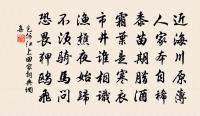 近海川原薄
人家本自稀
黍苗期臘酒
霜葉是寒衣
市井誰相識
漁樵夜始歸
不須騎馬問
恐畏狎鷗飛
江上田家